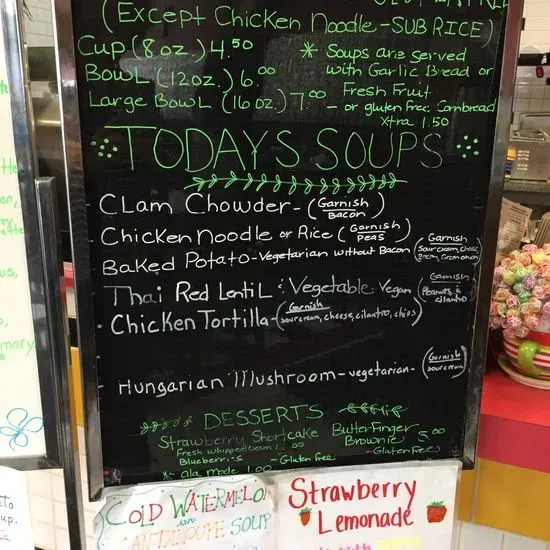 (Except Chicken Noodle - SUB RICE)
Cup (8oz.) 4.50
Bowl (12oz.) 6.00
Large Bowl (16oz.) 7.00
* Soups are served
with Garlic Bread or
Fresh Fruit
- or gluten free Cornbread
Xtra 1.50
TODAYS SOUPS
Clam Chowder - (Garnish Bacon)
Chicken Noodle or Rice (Garnish Peas)
Baked Potato - Vegetarian without Bacon (Garnish Sour cream, chese, Bacon, Green onion)
Thai Red Lentil & Vegetable - Vegan (Garnish Peanuts & cilantro)
Chicken Tortilla - (Garnish sour cream, cheese, cilantro, chips)
Hungarian Mushroom - vegetarian - (Garnish sour cream)
DESSERTS
Strawberry Shortcake
Fresh whipped cream
Blueberries - Gluten Free
* ala mode 1.00
Butter Finger
Brownie 5.00
- Gluten Free
COLD WATERMELON
AND
CANTALOUPE SOUP
Strawberry
Lemonade